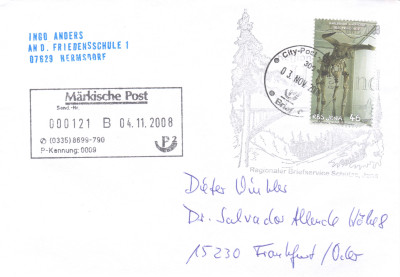 INGO ANDERS
AN D. FRIEDENSSCHULE 1
07629 HERMSDORF
Märkische Post
Send.-Nr.
000121 B 04.11.2008
(0335) 8699-790
P-Kennung: 0009
P²
City-Post
03. NOV. 20
Brief
46
Regionaler Briefservice
Dieter
Dr. Salvador Allende Höhe 6
15230 Frankfurt/Oder